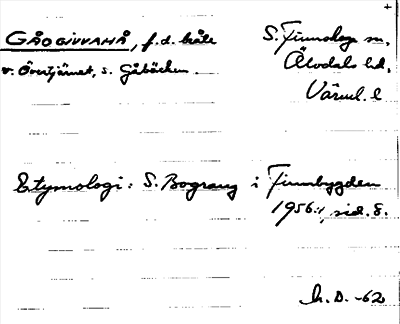 GÅOGIVVAHÅ, f.d. bråte
v. Övertjärnet, s. Gåbäcken.
S. Finnskoga sn,
Älvdals hd,
Värml. l
Etymologi: S. Bograng i Finnbygden
1956:1, sid. 8.
h.D. -62